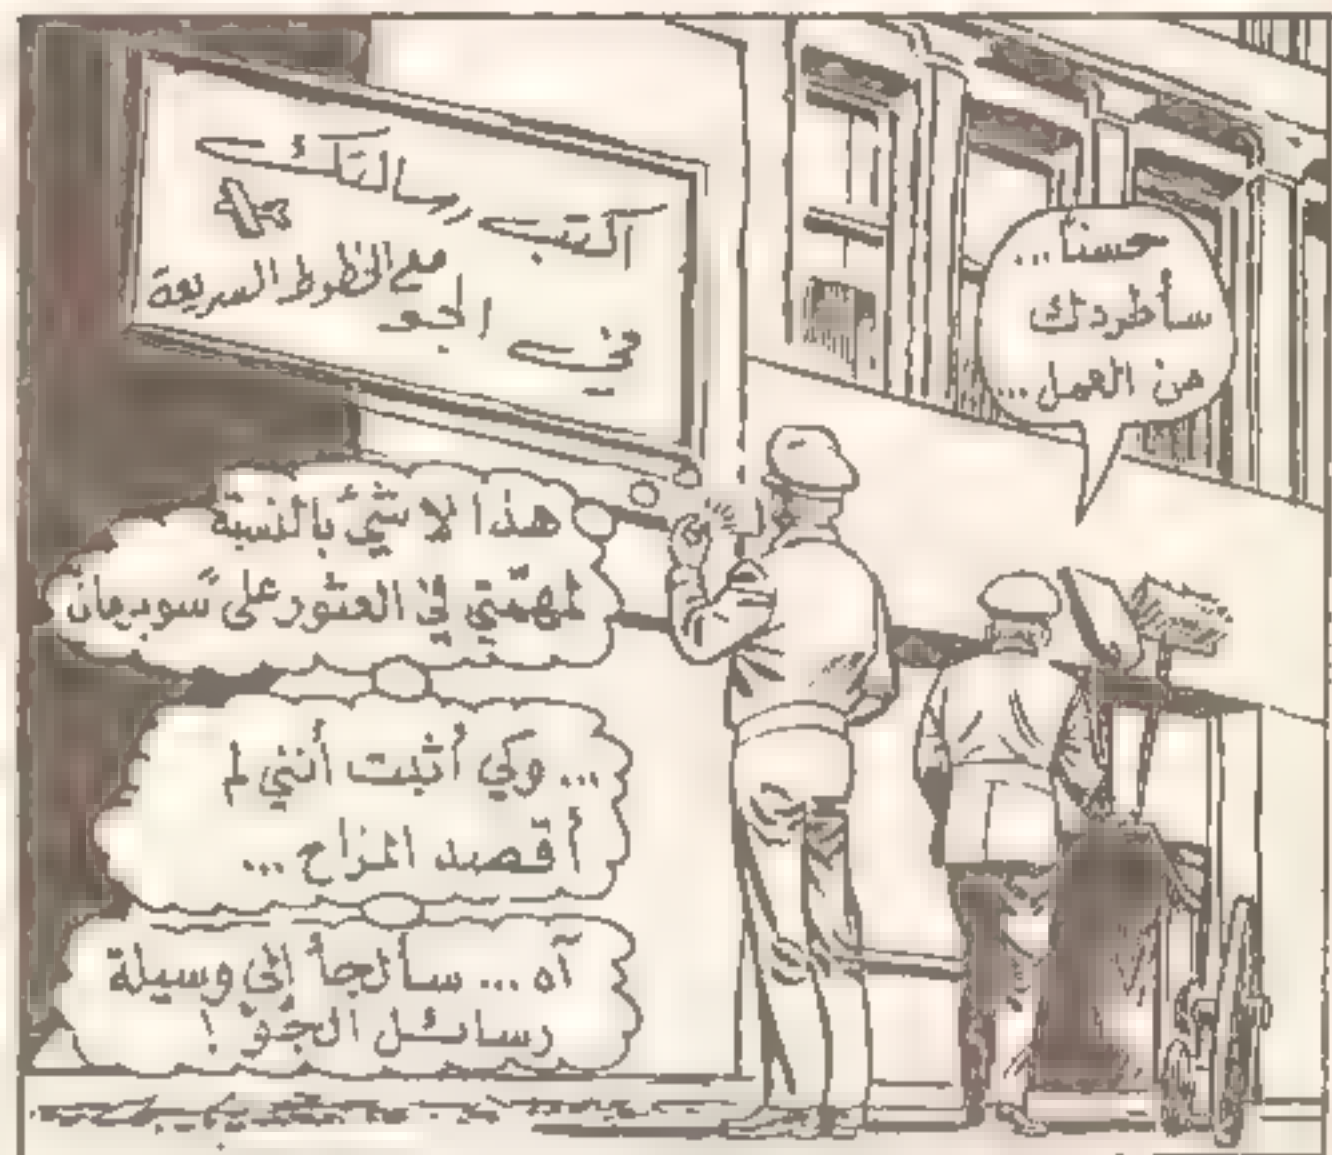 اكتب رسالتك
في الجو
مع الخطوط السريعة
حسناً...
سأطردك
من العمل...
هذا لا شيء بالنسبة
لمهمّتي في العثور على سوبرمان
... وكي أثبت أنني لم
أقصد المزاح ...
آه ... سألجأ إلى وسيلة
رسائل الجوّ !